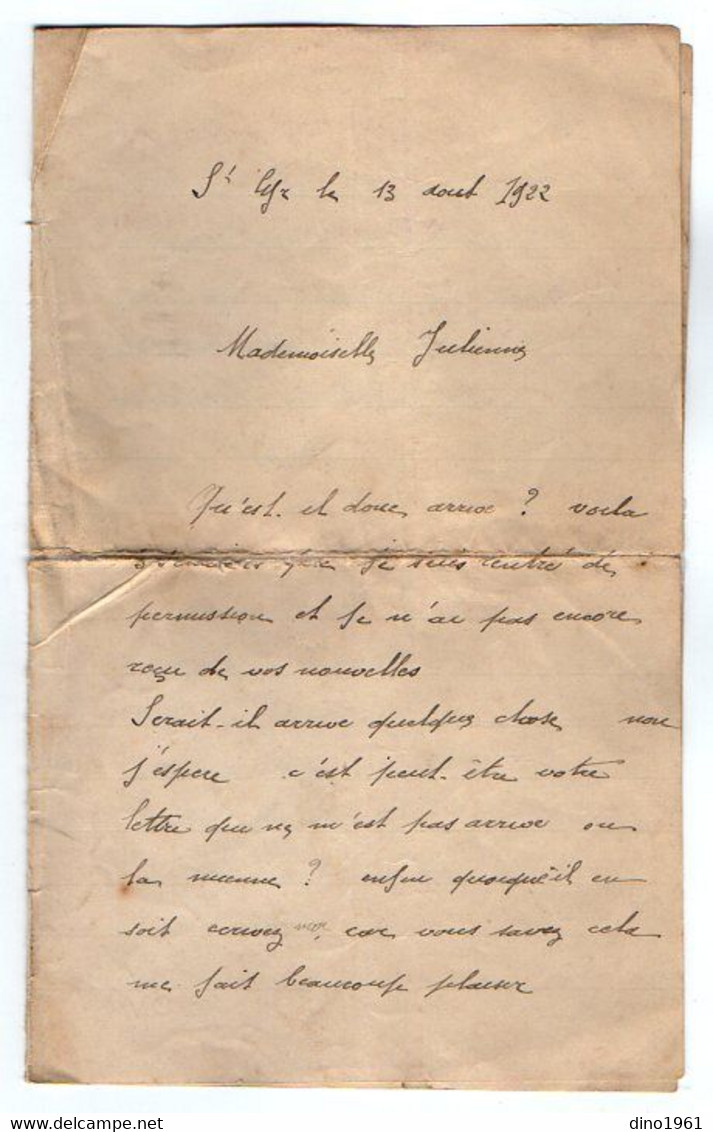 St Cyr le 13 aout 1922
Mademoiselle Julienne
Qu'est-il donc arrive ? voila
que je suis rentré de
permission et je n'ai pas encore
reçu de vos nouvelles
Serait-il arrive quelque chose non
j'espere c'est peut-être votre
lettre qui ne m'est pas arrive ou
la mienne ? enfin quoiqu'il en
soit car vous savez cela
me fait beaucoup plaisir
www.delcampe.net
dino1961
dino1961